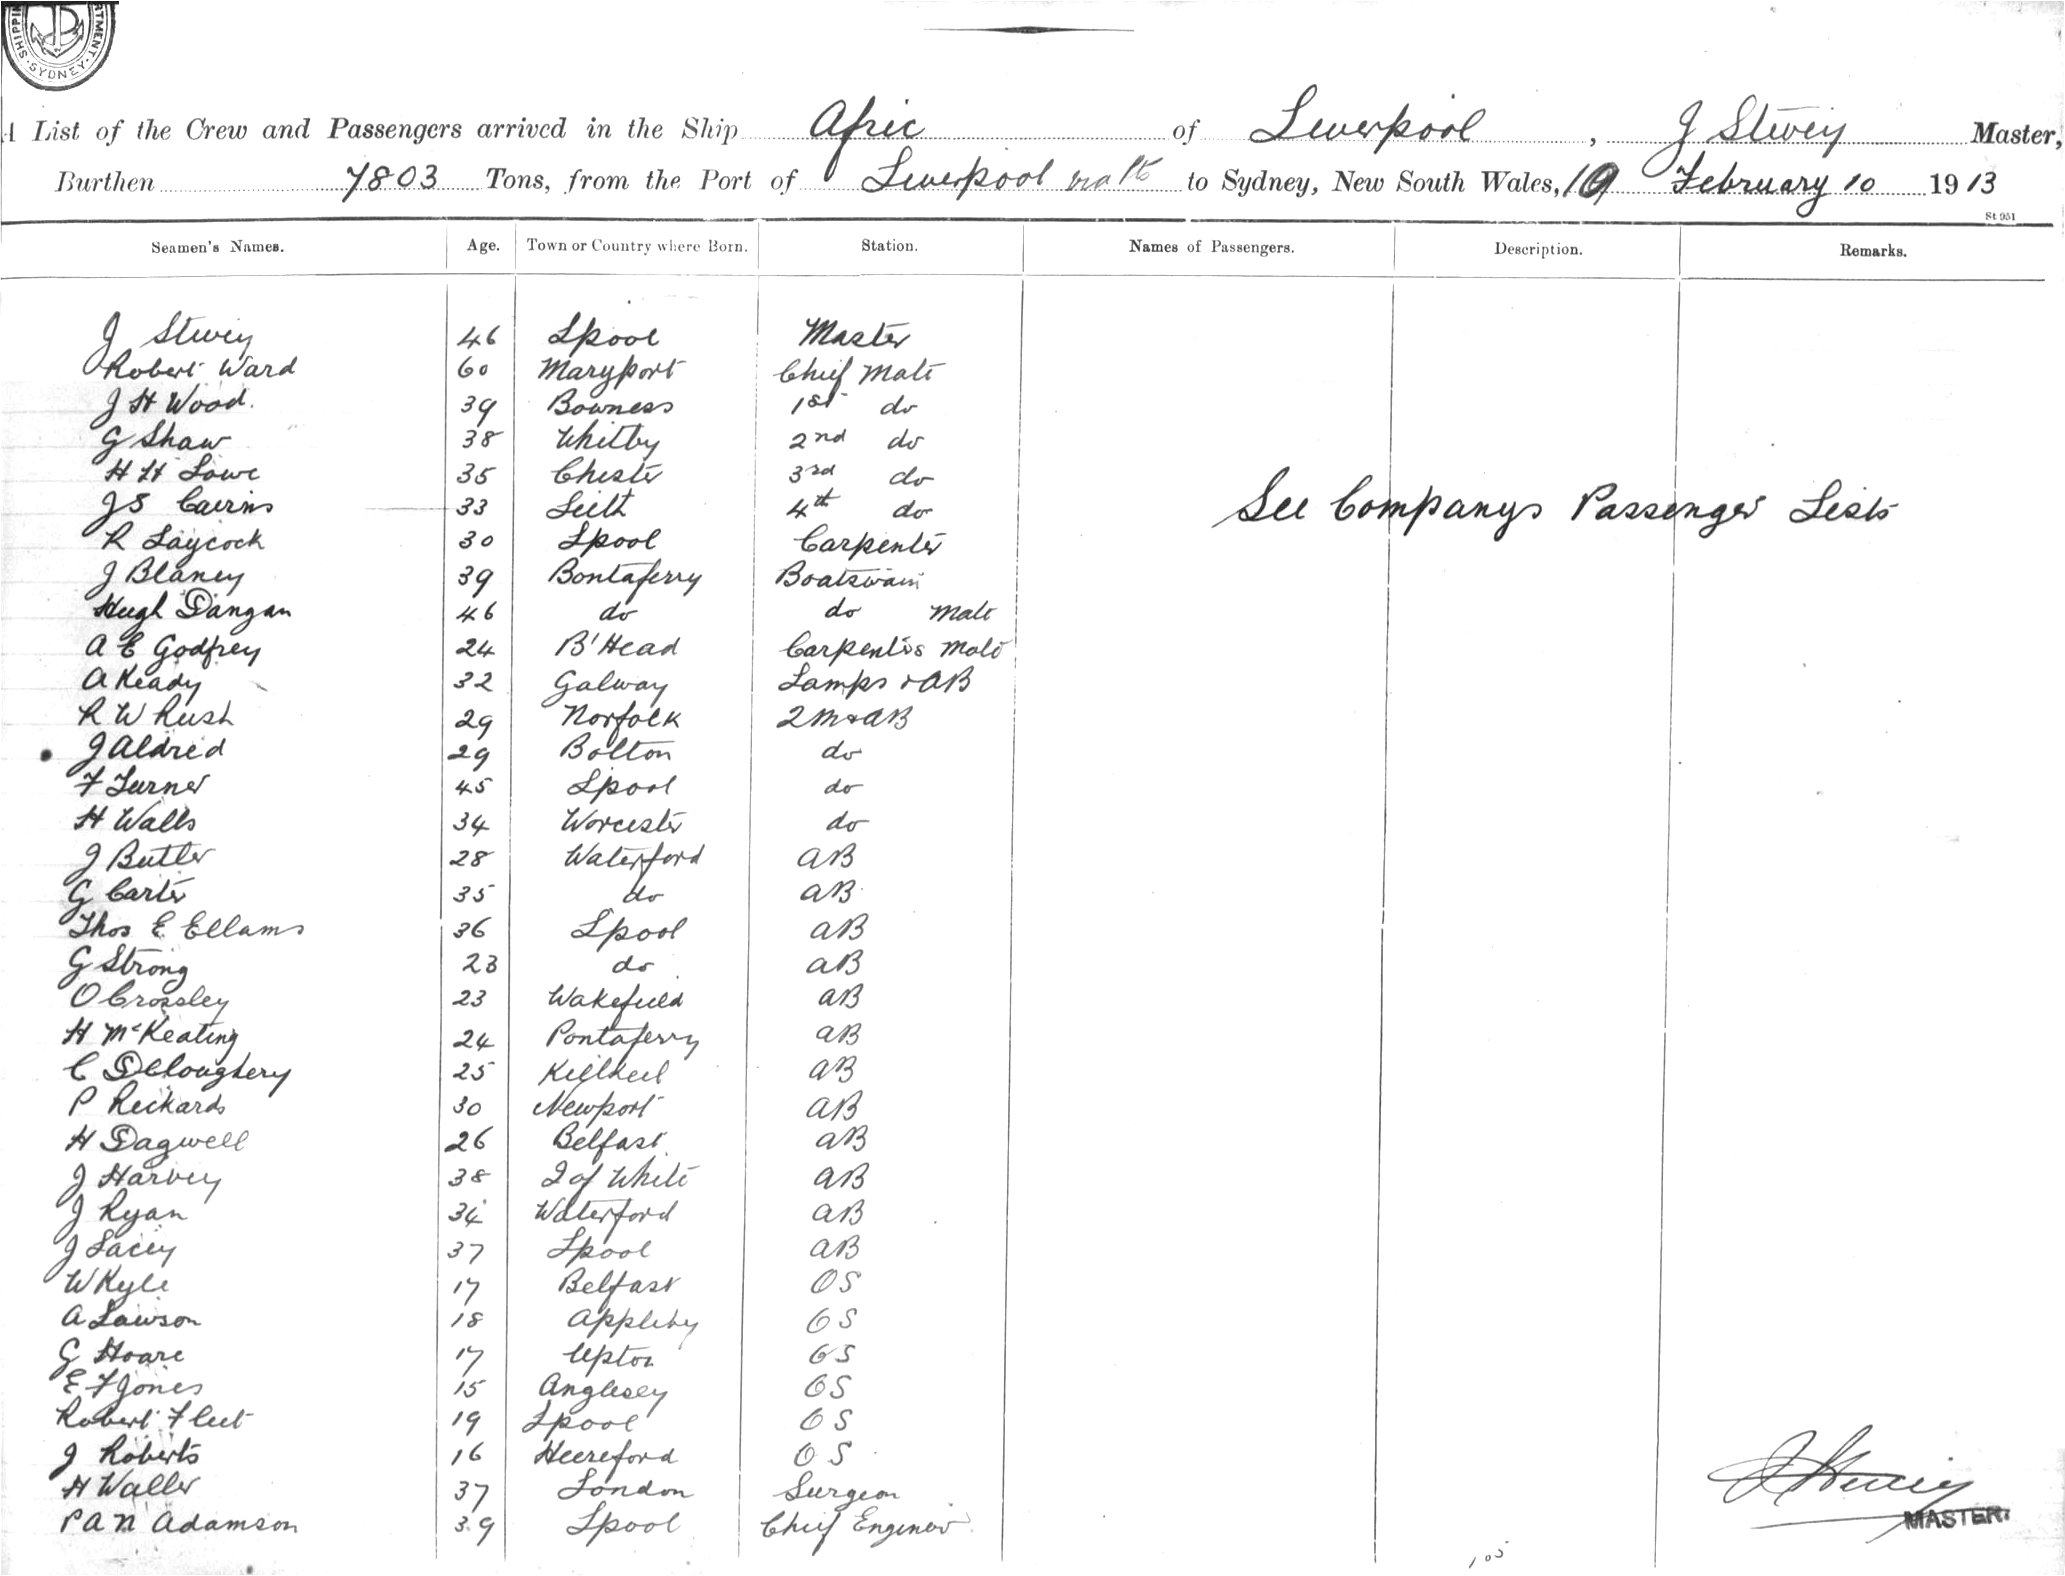 SHIPPING DEPARTMENT. SYDNEY.
A List of the Crew and Passengers arrived in the Ship Afric of Liverpool, J Stivey Master,
Burthen 7803 Tons, from the Port of Liverpool to Sydney, New South Wales, 10 February 10 1913
St 951
Seamen's Names. Age. Town or Country where Born. Station. Names of Passengers. Description. Remarks.
J Stivey 46 Lpool Master
Robert Ward 60 Maryport Chief Mate
J H Wood. 39 Bowness 1st do
G Shaw 38 Whitby 2nd do
H H Lowe 35 Chester 3rd do
J S Cairns 33 Leith 4th do
See Companys Passenger Lists
R Laycock 30 Lpool Carpenter
J Blaney 39 Bontaferry Boatswain
Hugh Dangan 46 do do Mate
A E Godfrey 24 B'Head Carpenters Mate
A Keady 32 Galway Lamps + AB
R W Rush 29 Norfolk 2 M + AB
J Aldred 29 Bolton do
F Turner 45 Lpool do
H Walls 34 Worcester do
J Butler 28 Waterford AB
G Carter 35 do AB
Thos E Ellams 36 Lpool AB
G Strong 23 do AB
O Crossley 23 Wakefield AB
H McKeating 24 Pontaferry AB
C DCloughery 25 Killkeel AB
P Rickards 30 Newport AB
H Dagwell 26 Belfast AB
J Harvey 38 I of White AB
J Ryan 34 Waterford AB
J Lacey 37 Lpool AB
W Kyle 17 Belfast OS
A Lawson 18 Appleby OS
G Hoare 17 Upton OS
E F Jones 15 Anglesey OS
Robert Fleet 19 Lpool OS
J Roberts 16 Heereford OS
H Waller 37 London Surgeon
P A N Adamson 39 Lpool Chief Engineer
J Stivey
MASTER.
105